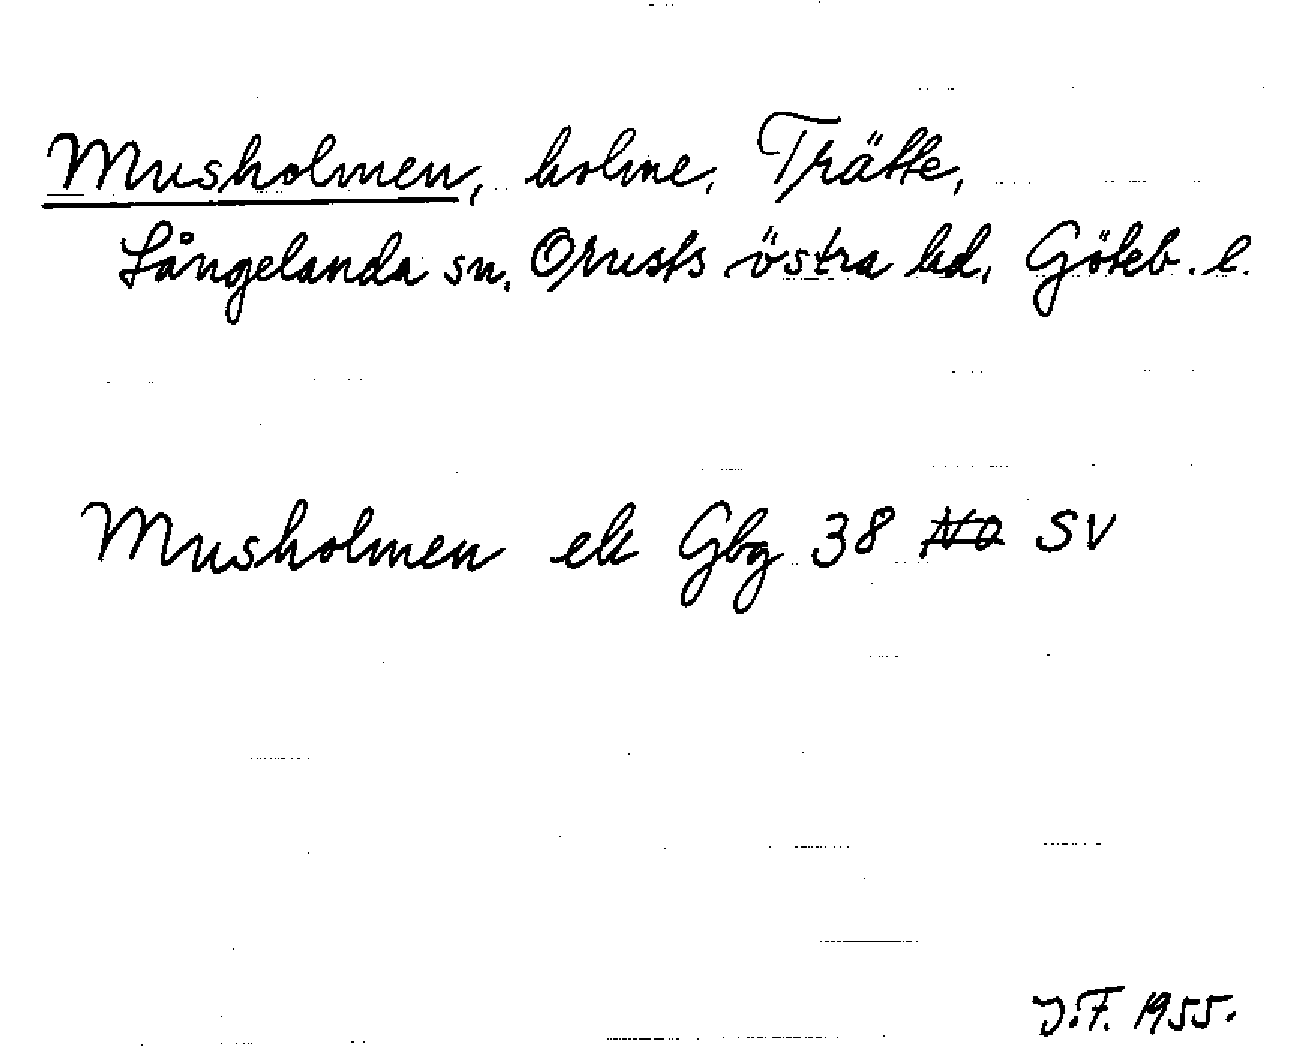 Musholmen, holme, Trätte,
Långelanda sn, Orusts östra hd, Göteb. l.
Musholmen ek Gbg 38 NO SV
J.F. 1955.